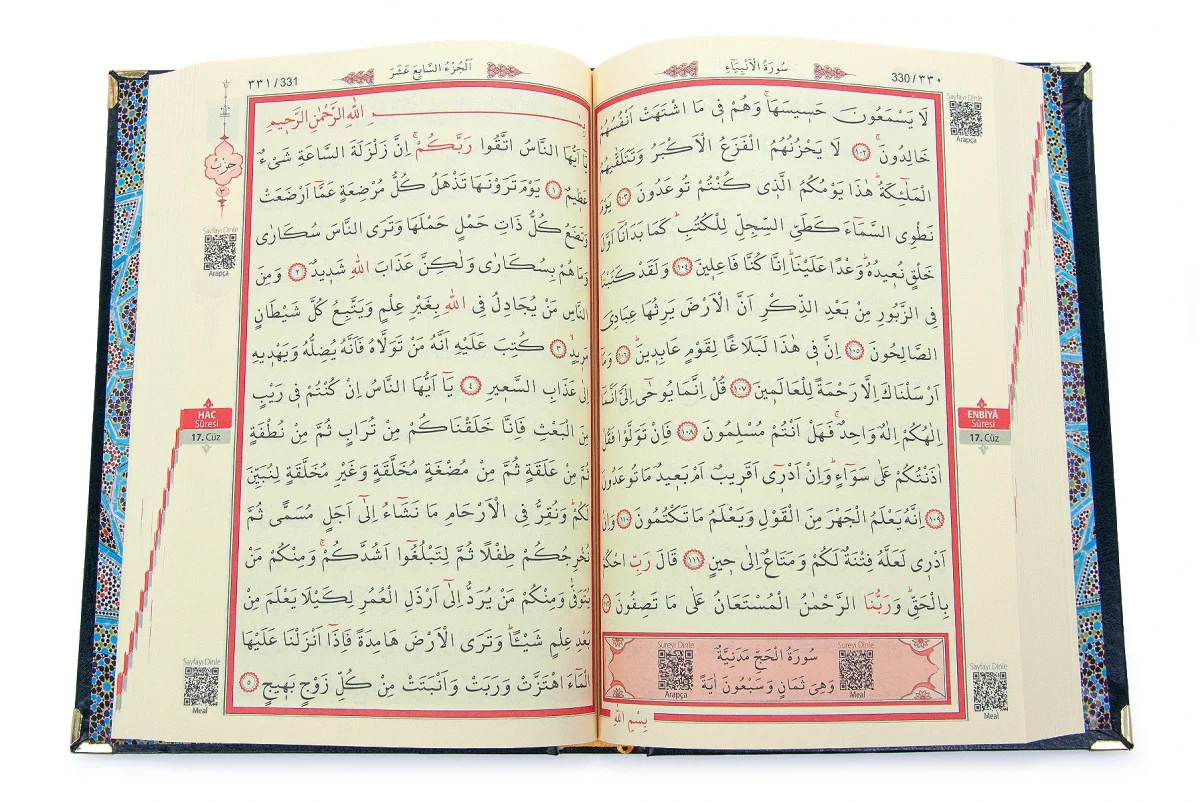 330/٣٣٠
سُورَةُ الْاَنْبِيَٓاءِ
لَا يَسْمَعُونَ حَسٖيسَهَاۚ وَهُمْ فٖى مَا اشْتَهَتْ اَنْفُسُهُمْ
خَالِدُونَ ١٠٢ لَا يَحْزُنُهُمُ الْفَزَعُ الْاَكْبَرُ وَتَتَلَقّٰيهُمُ
الْمَلٰٓئِكَةُۜ هٰذَا يَوْمُكُمُ الَّذٖى كُنْتُمْ تُوعَدُونَ ١٠٣ يَوْمَ
نَطْوِى السَّمَٓاءَ كَطَىِّ السِّجِلِّ لِلْكُتُبِۜ كَمَا بَدَاْنَٓا اَوَّلَ
خَلْقٍ نُعٖيدُهُۜ وَعْدًا عَلَيْنَاۜ اِنَّا كُنَّا فَاعِلٖينَ ١٠٤ وَلَقَدْ كَتَبْنَا
فِى الزَّبُورِ مِنْ بَعْدِ الذِّكْرِ اَنَّ الْاَرْضَ يَرِثُهَا عِبَادِىَ
الصَّالِحُونَ ١٠٥ اِنَّ فٖى هٰذَا لَبَلَاغًا لِقَوْمٍ عَابِدٖينَۜ ١٠٦ وَمَٓا
اَرْسَلْنَاكَ اِلَّا رَحْمَةً لِلْعَالَمٖينَ ١٠٧ قُلْ اِنَّمَا يُوحٰٓى اِلَىَّ اَنَّمَٓا
اِلٰهُكُمْ اِلٰهٌ وَاحِدٌۚ فَهَلْ اَنْتُمْ مُسْلِمُونَ ١٠٨ فَاِنْ تَوَلَّوْا فَقُلْ
اٰذَنْتُكُمْ عَلٰى سَوَٓاءٍۜ وَاِنْ اَدْرٖٓى اَقَرٖيبٌ اَمْ بَعٖيدٌ مَا تُوعَدُونَ
١٠٩ اِنَّهُ يَعْلَمُ الْجَهْرَ مِنَ الْقَوْلِ وَيَعْلَمُ مَا تَكْتُمُونَ ١١٠ وَاِنْ
اَدْرٖى لَعَلَّهُ فِتْنَةٌ لَكُمْ وَمَتَاعٌ اِلٰى حٖينٍ ١١١ قَالَ رَبِّ احْكُمْ
بِالْحَقِّۜ وَرَبُّنَا الرَّحْمٰنُ الْمُسْتَعَانُ عَلٰى مَا تَصِفُونَ ١١٢
سُورَةُ الْحَجِّ مَدَنِيَّةٌ
وَهِىَ ثَمَانٍ وَسَبْعُونَ اٰيَةً
Sureyi Dinle
Arapça
Sureyi Dinle
Meal
بِسْمِ اللّٰهِ
Sayfayı Dinle
Arapça
ENBİYÂ
Sûresi
17. Cüz
Sayfayı Dinle
Meal
٣٣١/331
اَلْجُزْءُ السَّابِعَ عَشَرَ
بِسْمِ اللّٰهِ الرَّحْمٰنِ الرَّحٖيمِ
يَٓا اَيُّهَا النَّاسُ اتَّقُوا رَبَّكُمْۚ اِنَّ زَلْزَلَةَ السَّاعَةِ شَىْءٌ
عَظٖيمٌ ١ يَوْمَ تَرَوْنَهَا تَذْهَلُ كُلُّ مُرْضِعَةٍ عَمَّٓا اَرْضَعَتْ
وَتَضَعُ كُلُّ ذَاتِ حَمْلٍ حَمْلَهَا وَتَرَى النَّاسَ سُكَارٰى
وَمَا هُمْ بِسُكَارٰى وَلٰكِنَّ عَذَابَ اللّٰهِ شَدٖيدٌ ٢ وَمِنَ
النَّاسِ مَنْ يُجَادِلُ فِى اللّٰهِ بِغَيْرِ عِلْمٍ وَيَتَّبِعُ كُلَّ شَيْطَانٍ
مَرٖيدٍۙ ٣ كُتِبَ عَلَيْهِ اَنَّهُ مَنْ تَوَلَّاهُ فَاَنَّهُ يُضِلُّهُ وَيَهْدٖيهِ
اِلٰى عَذَابِ السَّعٖيرِ ٤ يَٓا اَيُّهَا النَّاسُ اِنْ كُنْتُمْ فٖى رَيْبٍ
مِنَ الْبَعْثِ فَاِنَّا خَلَقْنَاكُمْ مِنْ تُرَابٍ ثُمَّ مِنْ نُطْفَةٍ
ثُمَّ مِنْ عَلَقَةٍ ثُمَّ مِنْ مُضْغَةٍ مُخَلَّقَةٍ وَغَيْرِ مُخَلَّقَةٍ لِنُبَيِّنَ
لَكُمْۜ وَنُقِرُّ فِى الْاَرْحَامِ مَا نَشَٓاءُ اِلٰٓى اَجَلٍ مُسَمًّى ثُمَّ
نُخْرِجُكُمْ طِفْلًا ثُمَّ لِتَبْلُغُٓوا اَشُدَّكُمْۚ وَمِنْكُمْ مَنْ
يُتَوَفّٰى وَمِنْكُمْ مَنْ يُرَدُّ اِلٰٓى اَرْذَلِ الْعُمُرِ لِكَيْلَا يَعْلَمَ مِنْ
بَعْدِ عِلْمٍ شَيْـًٔاۜ وَتَرَى الْاَرْضَ هَامِدَةً فَاِذَٓا اَنْزَلْنَا عَلَيْهَا
الْمَٓاءَ اهْتَزَّتْ وَرَبَتْ وَاَنْبَتَتْ مِنْ كُلِّ زَوْجٍ بَهٖيجٍ ٥
حِزْبٌ
Sayfayı Dinle
Arapça
HAC
Sûresi
17. Cüz
Sayfayı Dinle
Meal